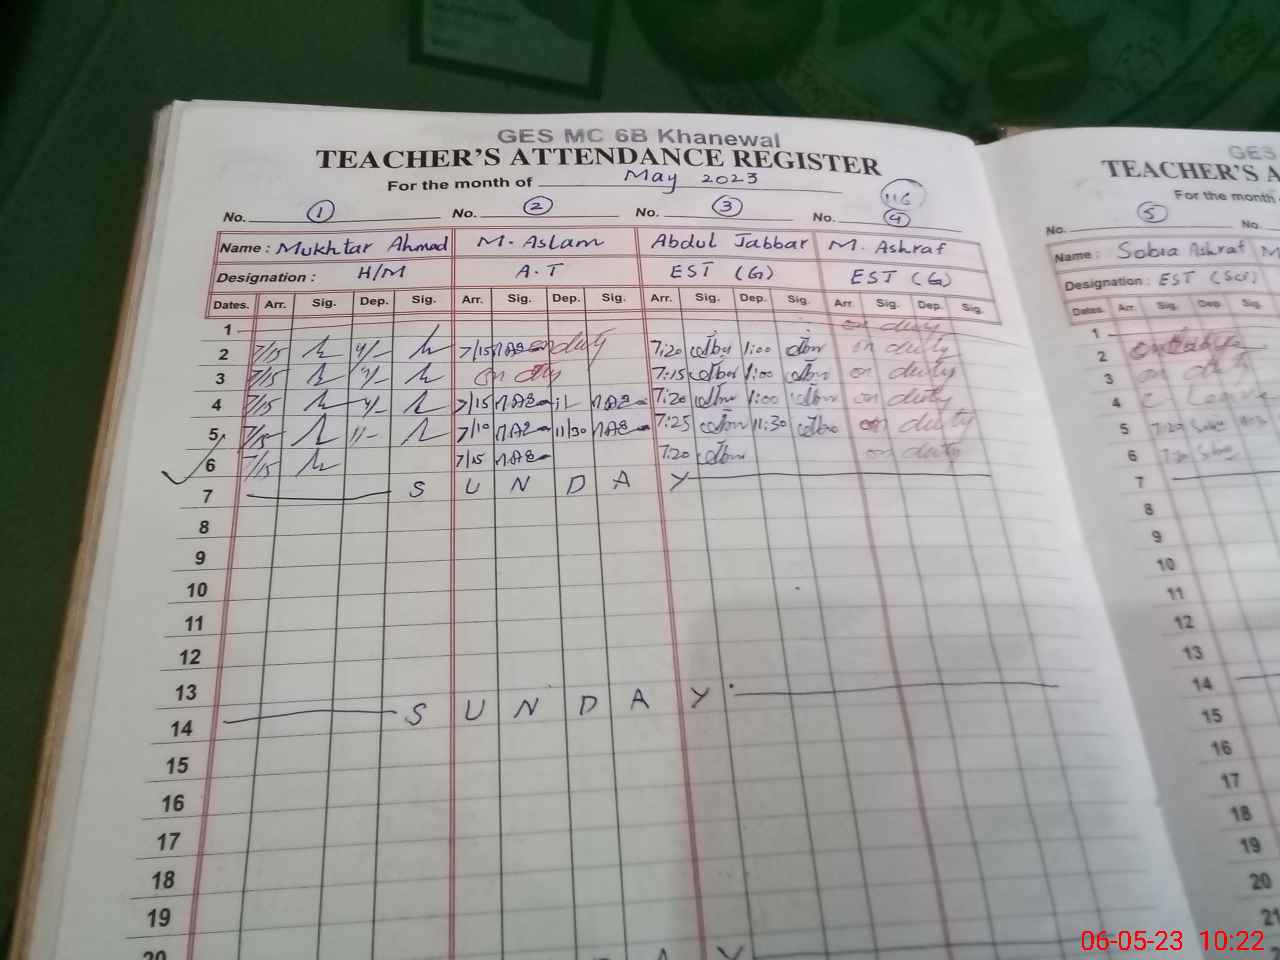 GES MC 6B Khanewal
TEACHER'S ATTENDANCE REGISTER
For the month of May 2023
116
No. 1 No. 2 No. 3 No. 4
Name : Mukhtar Ahmad M. Aslam Abdul Jabbar M. Ashraf
Designation : H/M A.T EST (G) EST (G)
Dates. Arr. Sig. Dep. Sig. Arr. Sig. Dep. Sig. Arr. Sig. Dep. Sig. Arr. Sig. Dep. Sig.
1 on duty
2 7/15 7/15 on duty 7:20 1:00 on duty
3 7/15 on duty 7:15 1:00 on duty
4 7/15 7/15 7:20 1:00 on duty
5 7/15 7/10 11/30 7:25 11:30 on duty
6 7/15 7/15 7:20 on duty
7 S U N D A Y
8
9
10
11
12
13
14 S U N D A Y
15
16
17
18
19
20 A Y
GES
TEACHER'S A
For the month
5
No. No.
Name : Sobia Ashraf M
Designation : EST (Sci)
Dates. Arr. Sig. Dep. Sig.
1
2
3 on duty
4 C Leave
5 7:20
6 7:20
7
8
9
10
11
12
13
14
15
16
17
18
19
20
21
06-05-23 10:22